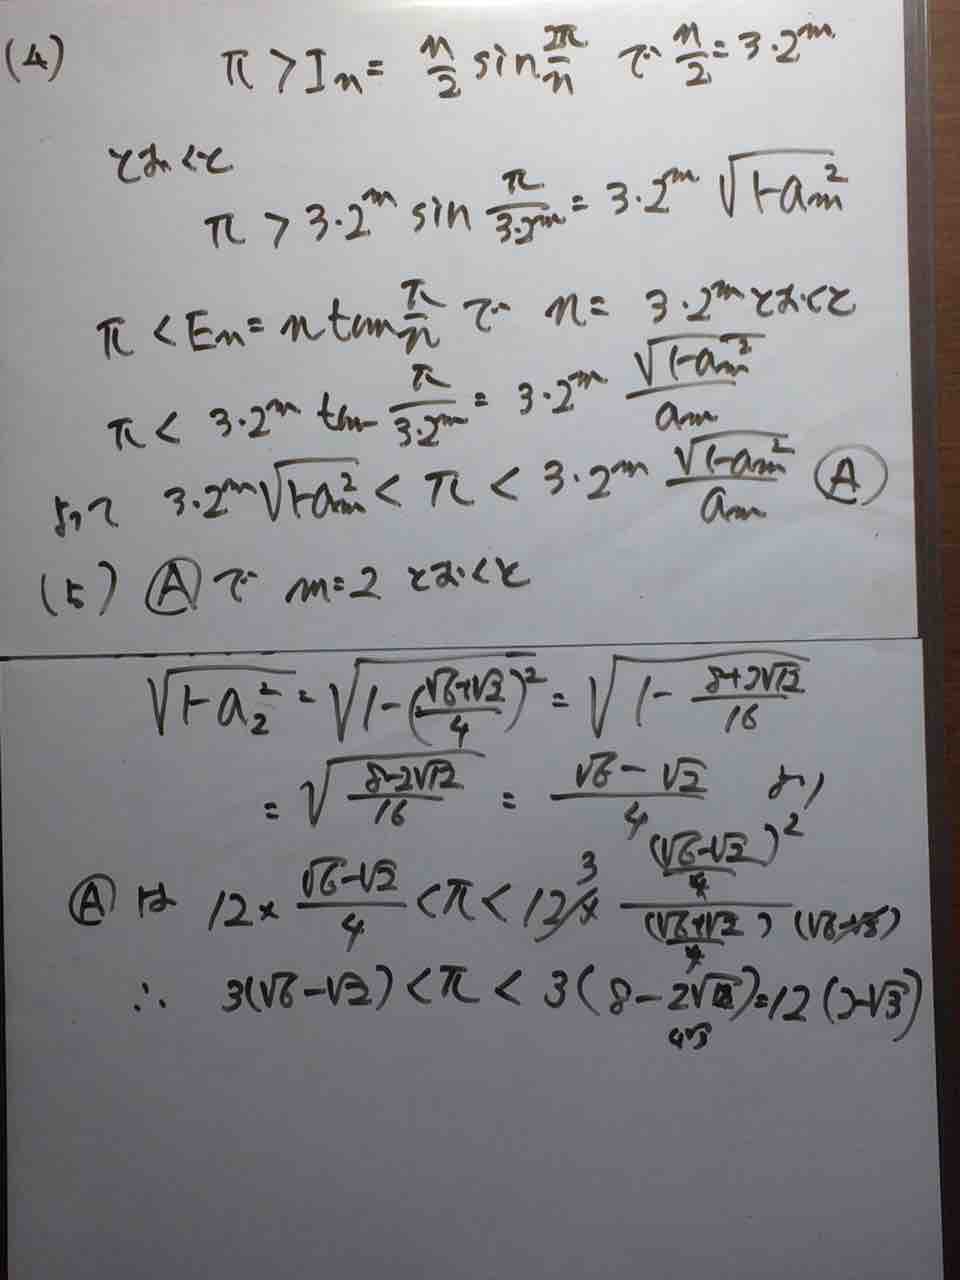 (4) π > Iₙ = n/2 sin 2π/n で n/2 = 3・2^m
とおくと
π > 3・2^m sin π/(3・2^m) = 3・2^m √(1-aₘ²)
π < Eₙ = n tan π/n で n = 3・2^m とおくと
π < 3・2^m tan π/(3・2^m) = 3・2^m √(1-aₘ²)/aₘ
よって 3・2^m √(1-aₘ²) < π < 3・2^m √(1-aₘ²)/aₘ Ⓐ
(5) Ⓐで m=2 とおくと
√(1-a₂²) = √(1-((√6+√2)/4)²) = √(1-(8+2√12)/16)
= √((8-2√12)/16) = (√6-√2)/4 より
Ⓐは 12×(√6-√2)/4 < π < 12× 3 ((√6-√2)/4)²/((√6+√2)/4)
∴ 3(√6-√2) < π < 3(8-2√12) = 12(2-√3)
4√3